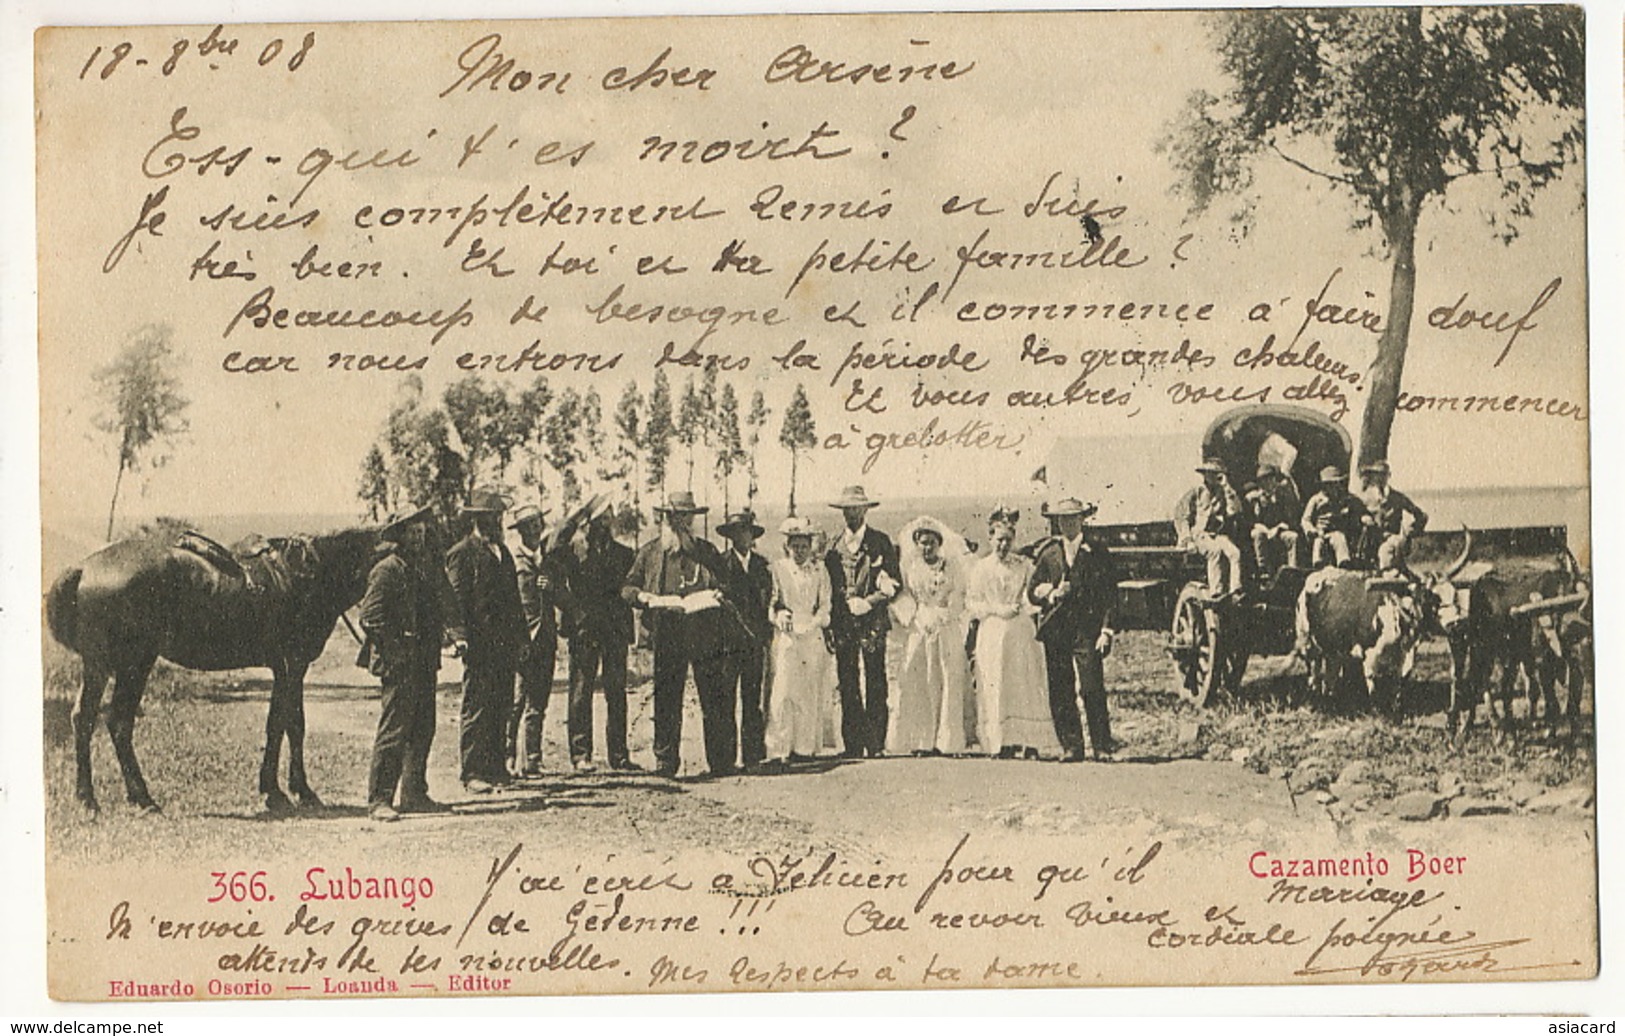 18 - 8bre 08
Mon cher Arsène
Ess-qui t'es moirt ?
Je suis complètement remis et suis
très bien. Et toi et ta petite famille ?
Beaucoup de besogne et il commence à faire douf
car nous entrons dans la période des grandes chaleurs.
Et vous autres, vous allez commencer
à grelotter.
366. Lubango
Cazamento Boer
Mariage.
J'ai écrit à Félicien pour qu'il
m'envoie des grives de Gédenne !!! Au revoir vieux et
cordiale poignée
attends de tes nouvelles. Mes respects à ta dame.
Eduardo Osorio — Loanda — Editor
asiacard
www.delcampe.net